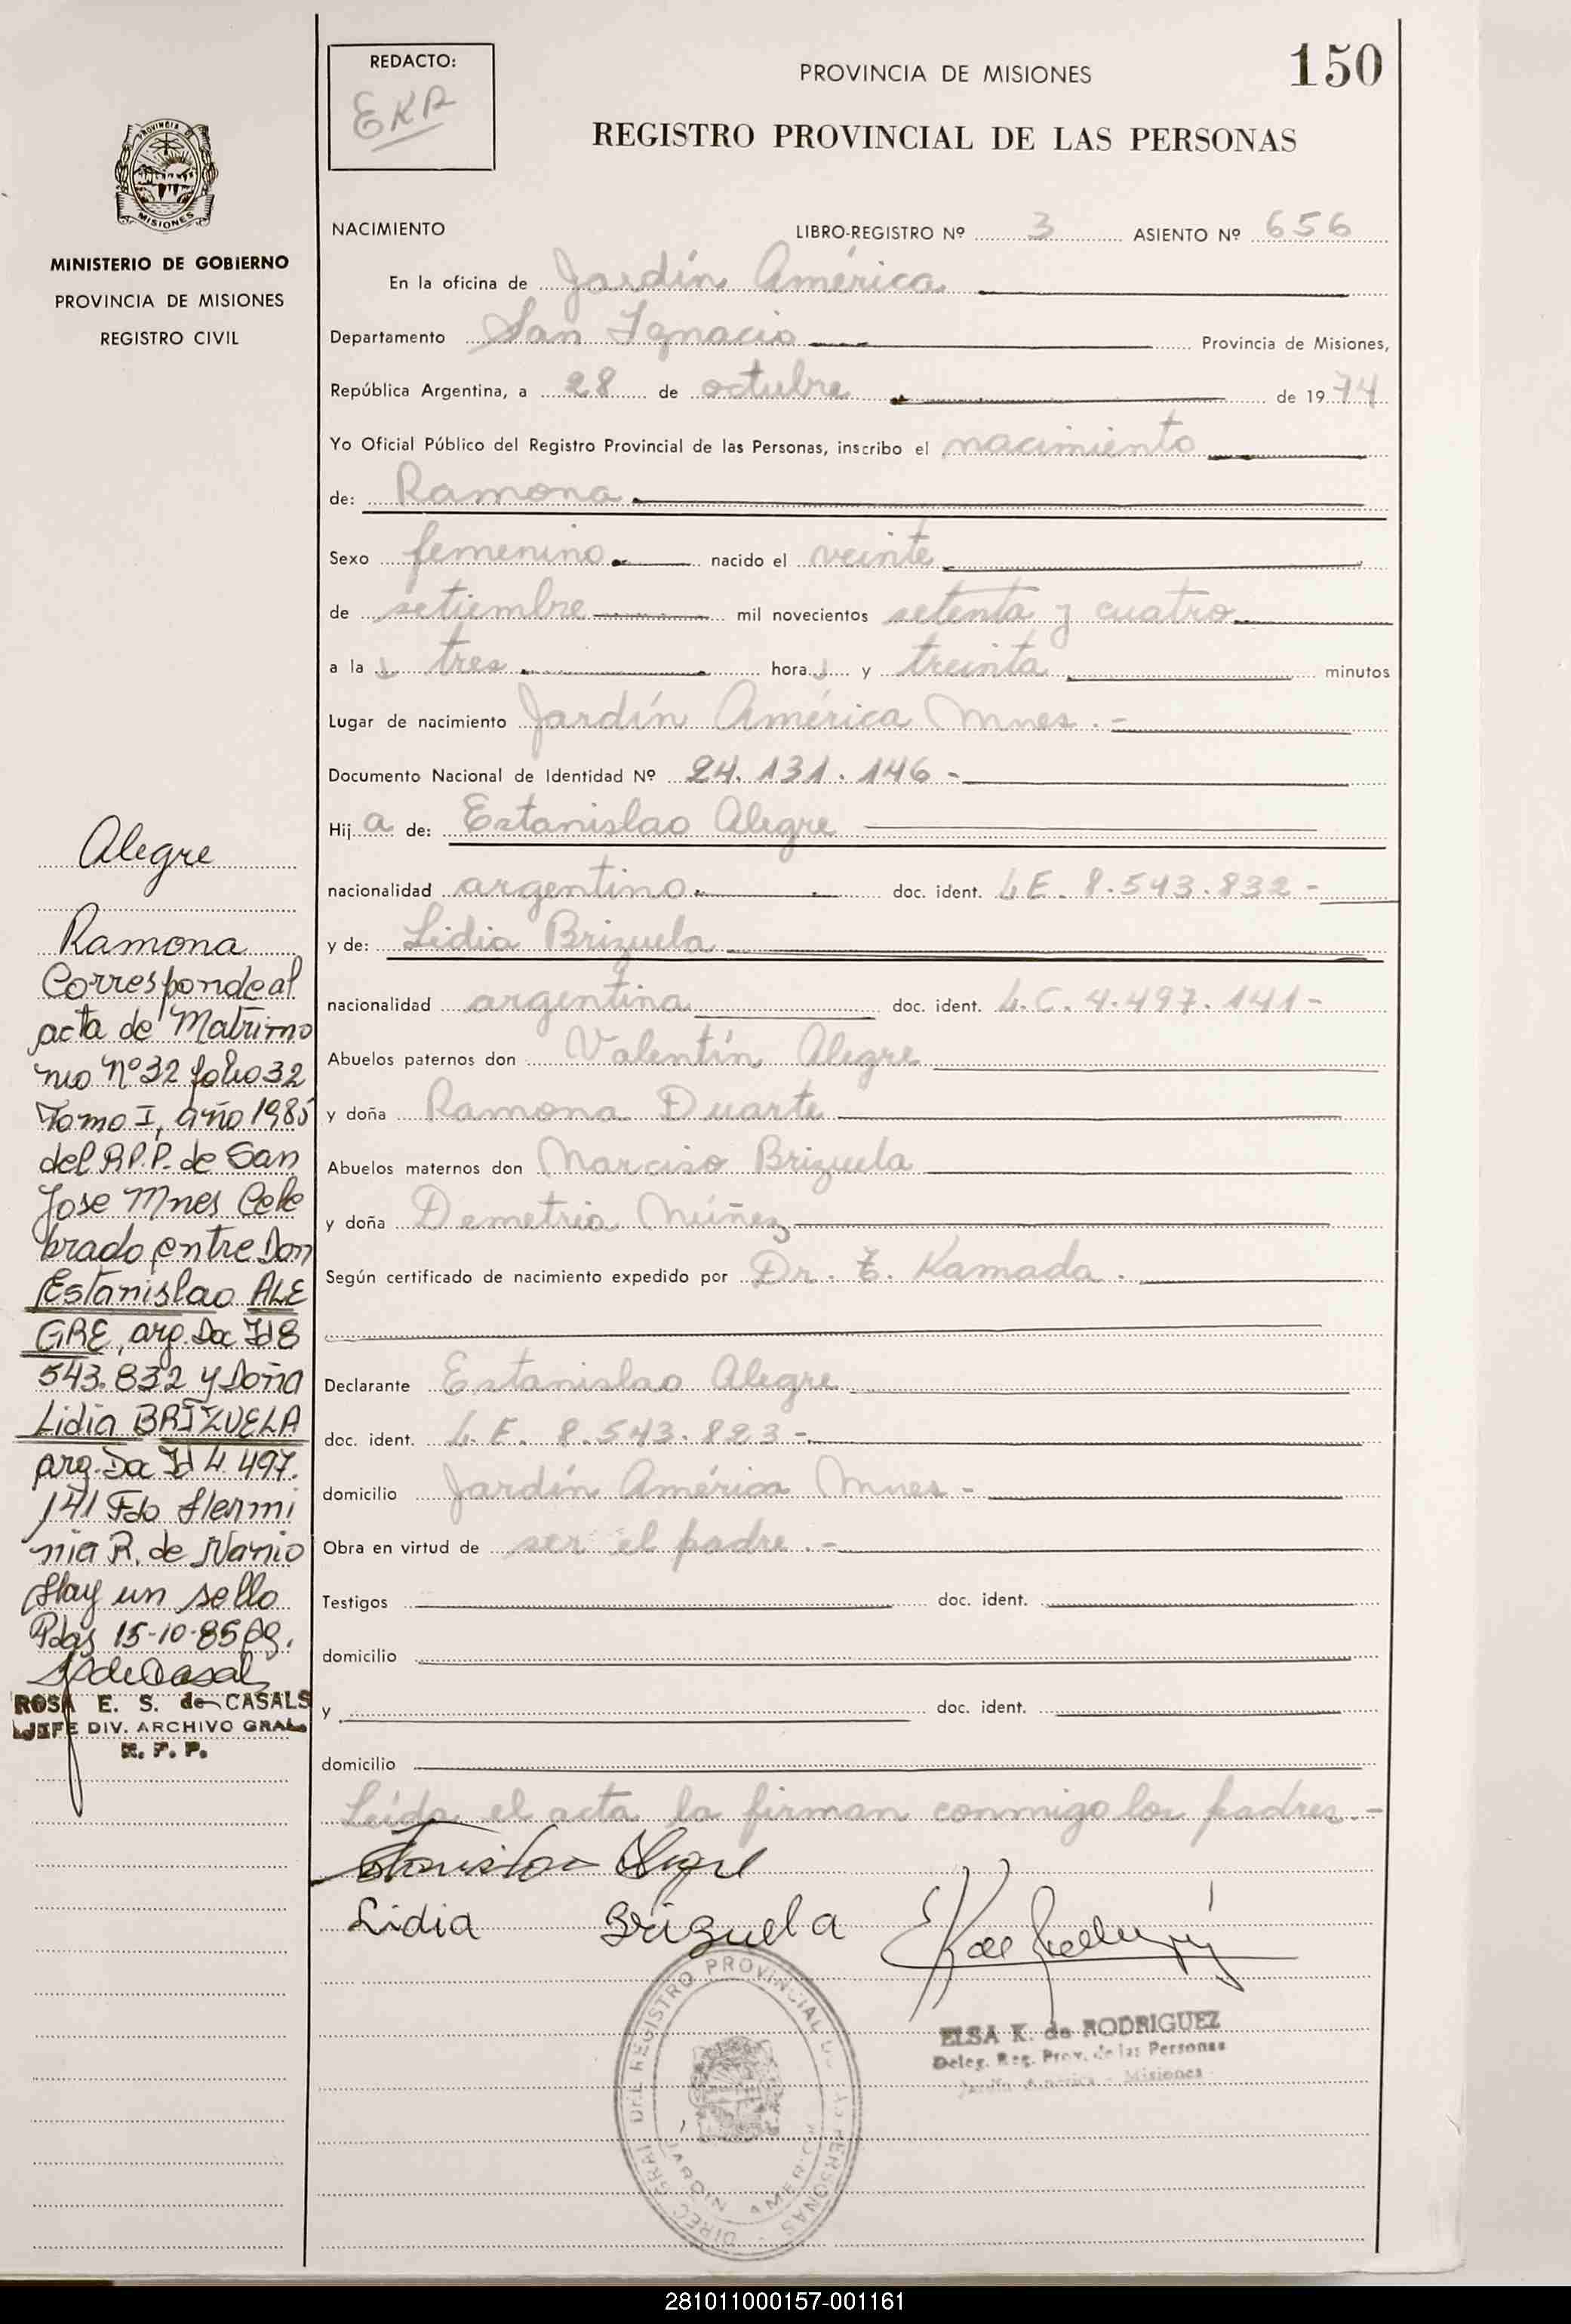 150
REDACTO:
EKR
PROVINCIA DE MISIONES
REGISTRO PROVINCIAL DE LAS PERSONAS
PROVINCIA DE
MISIONES
MINISTERIO DE GOBIERNO
PROVINCIA DE MISIONES
REGISTRO CIVIL
NACIMIENTO LIBRO-REGISTRO Nº 3 ASIENTO Nº 656
En la oficina de Jardín América
Departamento San Ignacio Provincia de Misiones,
República Argentina, a 28 de octubre de 1974
Yo Oficial Público del Registro Provincial de las Personas, inscribo el nacimiento
de: Ramona
Sexo femenino nacido el veinte
de setiembre mil novecientos setenta y cuatro
a las tres horas y treinta minutos
Lugar de nacimiento Jardín América Mnes.-
Documento Nacional de Identidad Nº 24.131.146-
Hija de: Estanislao Alegre
nacionalidad argentino doc. ident. L.E. 8.543.832-
y de: Lidia Brizuela
nacionalidad argentina doc. ident. L.C. 4.497.141-
Abuelos paternos don Valentín Alegre
y doña Ramona Duarte
Abuelos maternos don Narciso Brizuela
y doña Demetria Núñez
Según certificado de nacimiento expedido por Dr. Kamada.
Declarante Estanislao Alegre
doc. ident. L.E. 8.543.823-
domicilio Jardín América Mnes-
Obra en virtud de ser el padre.-
Testigos doc. ident.
domicilio
y doc. ident.
domicilio
Leída el acta la firman conmigo los padres.-
Estanislao Alegre
Lidia Brizuela
ELSA K. de RODRIGUEZ
Deleg. Reg. Prov. de las Personas
Jardín América - Misiones
DIREC. GRAL DEL REGISTRO PROVINCIAL DE LAS PERSONAS
JARDIN AMERICA
Alegre
Ramona
Corresponde al
acta de Matrimo
nio Nº 32 folio 32
Tomo I, año 1985
del R.P.P. de San
Jose Mnes Cele
brado entre Don
Estanislao ALE
GRE, arg. Doc Id 8
543.832 y Doña
Lidia BRIZUELA
arg. Doc Id 4.497.
141 Fdo Hermi
nia R. de
Hay un sello
Pdas 15-10-85
ROSA E. S. de CASALS
JEFE DIV. ARCHIVO GRAL.
R. P. P.
281011000157-001161